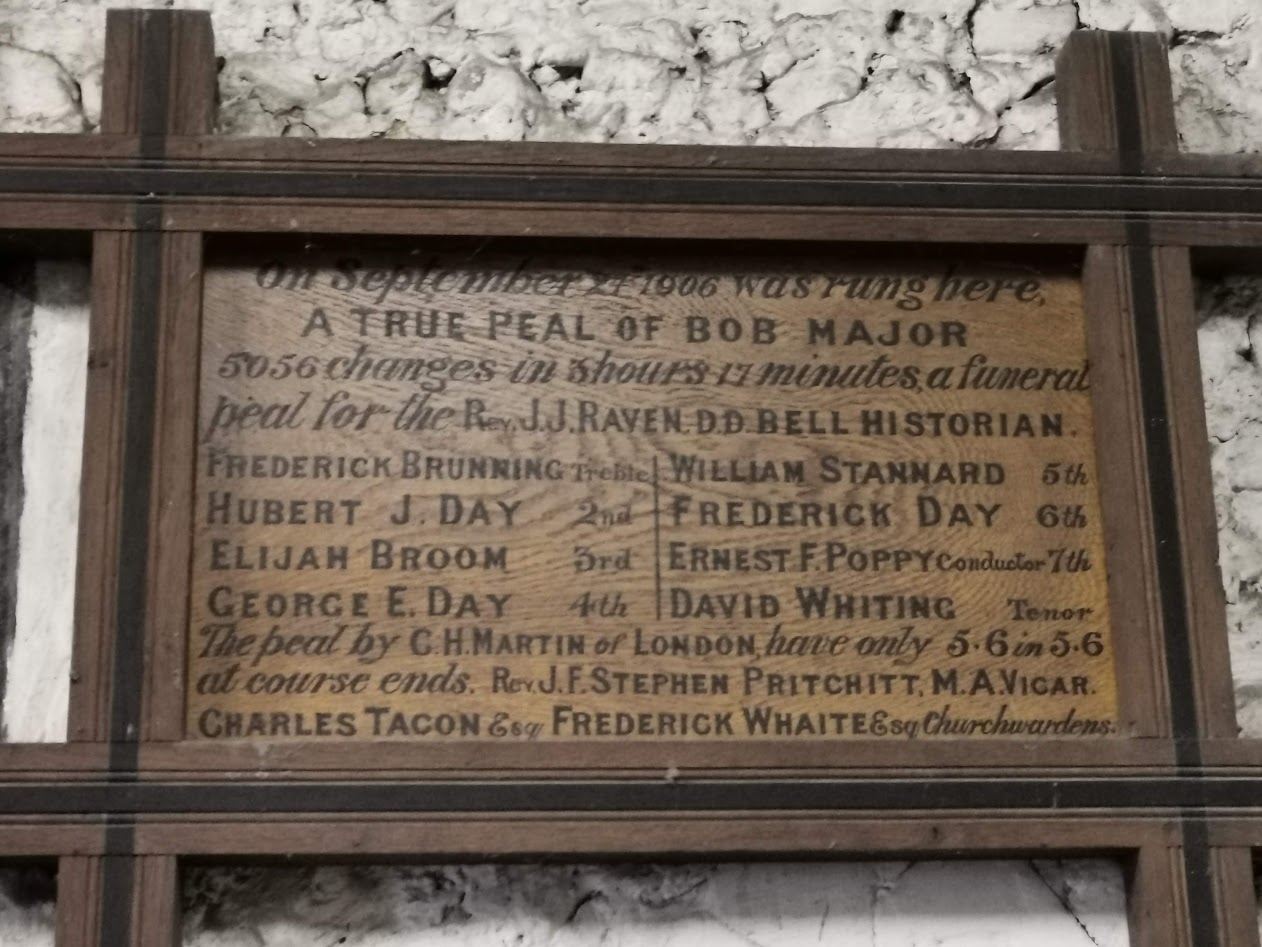 On September 24th 1906 was rung here,
A TRUE PEAL OF BOB MAJOR
5056 changes in 3 hours 17 minutes, a funeral
peal for the Rev. J.J. RAVEN. D.D. BELL HISTORIAN.
FREDERICK BRUNNING Treble WILLIAM STANNARD 5th
HUBERT J. DAY 2nd FREDERICK DAY 6th
ELIJAH BROOM 3rd ERNEST. F. POPPY Conductor 7th
GEORGE E. DAY 4th DAVID WHITING Tenor
The peal by C.H. MARTIN of LONDON, have only 5·6 in 5·6
at course ends. Rev. J.F. STEPHEN PRITCHITT, M.A. VICAR.
CHARLES TACON Esq FREDERICK WHAITE Esq Churchwardens.